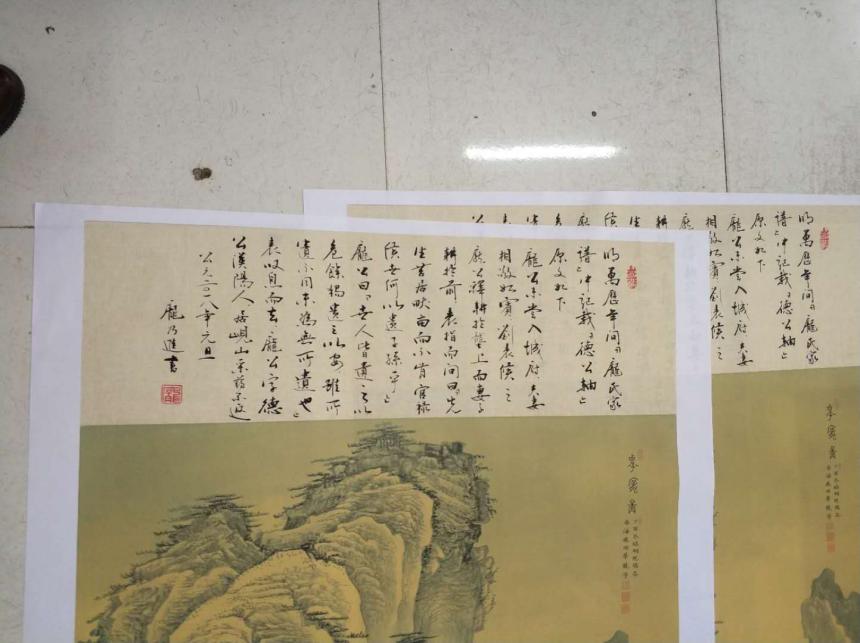 明萬歷年間《龐氏家
譜》中記載《德公軸》
原文如下
龐公未嘗入城府夫妻
相敬如賓劉表候之
龐公釋耕於壟上而妻子
耕於前表指而問曰「先
生苦居畎亩而不肯官禄
後世何以遺子孫乎」
龐公曰「世人皆遺之以
危餘独遺之以安雖所
遺不同未為無所遺也」
表叹息而去龐公字德
公漢陽人居峴山采药不返
公元二〇一八年元旦
龐乃進書
明萬歷年間《龐氏家
譜》中記載《德公軸》
原文如下
龐公未嘗入城府夫妻
相敬如賓劉表候之